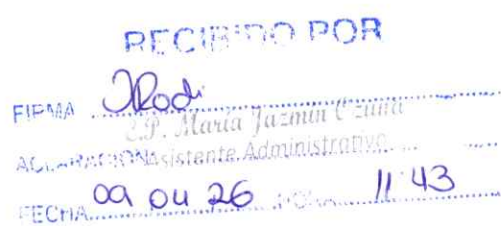 RECIBIDO POR
FIRMA
C.P. María Jazmín
ACLARACION Asistente Administrativo
FECHA 09 04 26 HORA 11:43